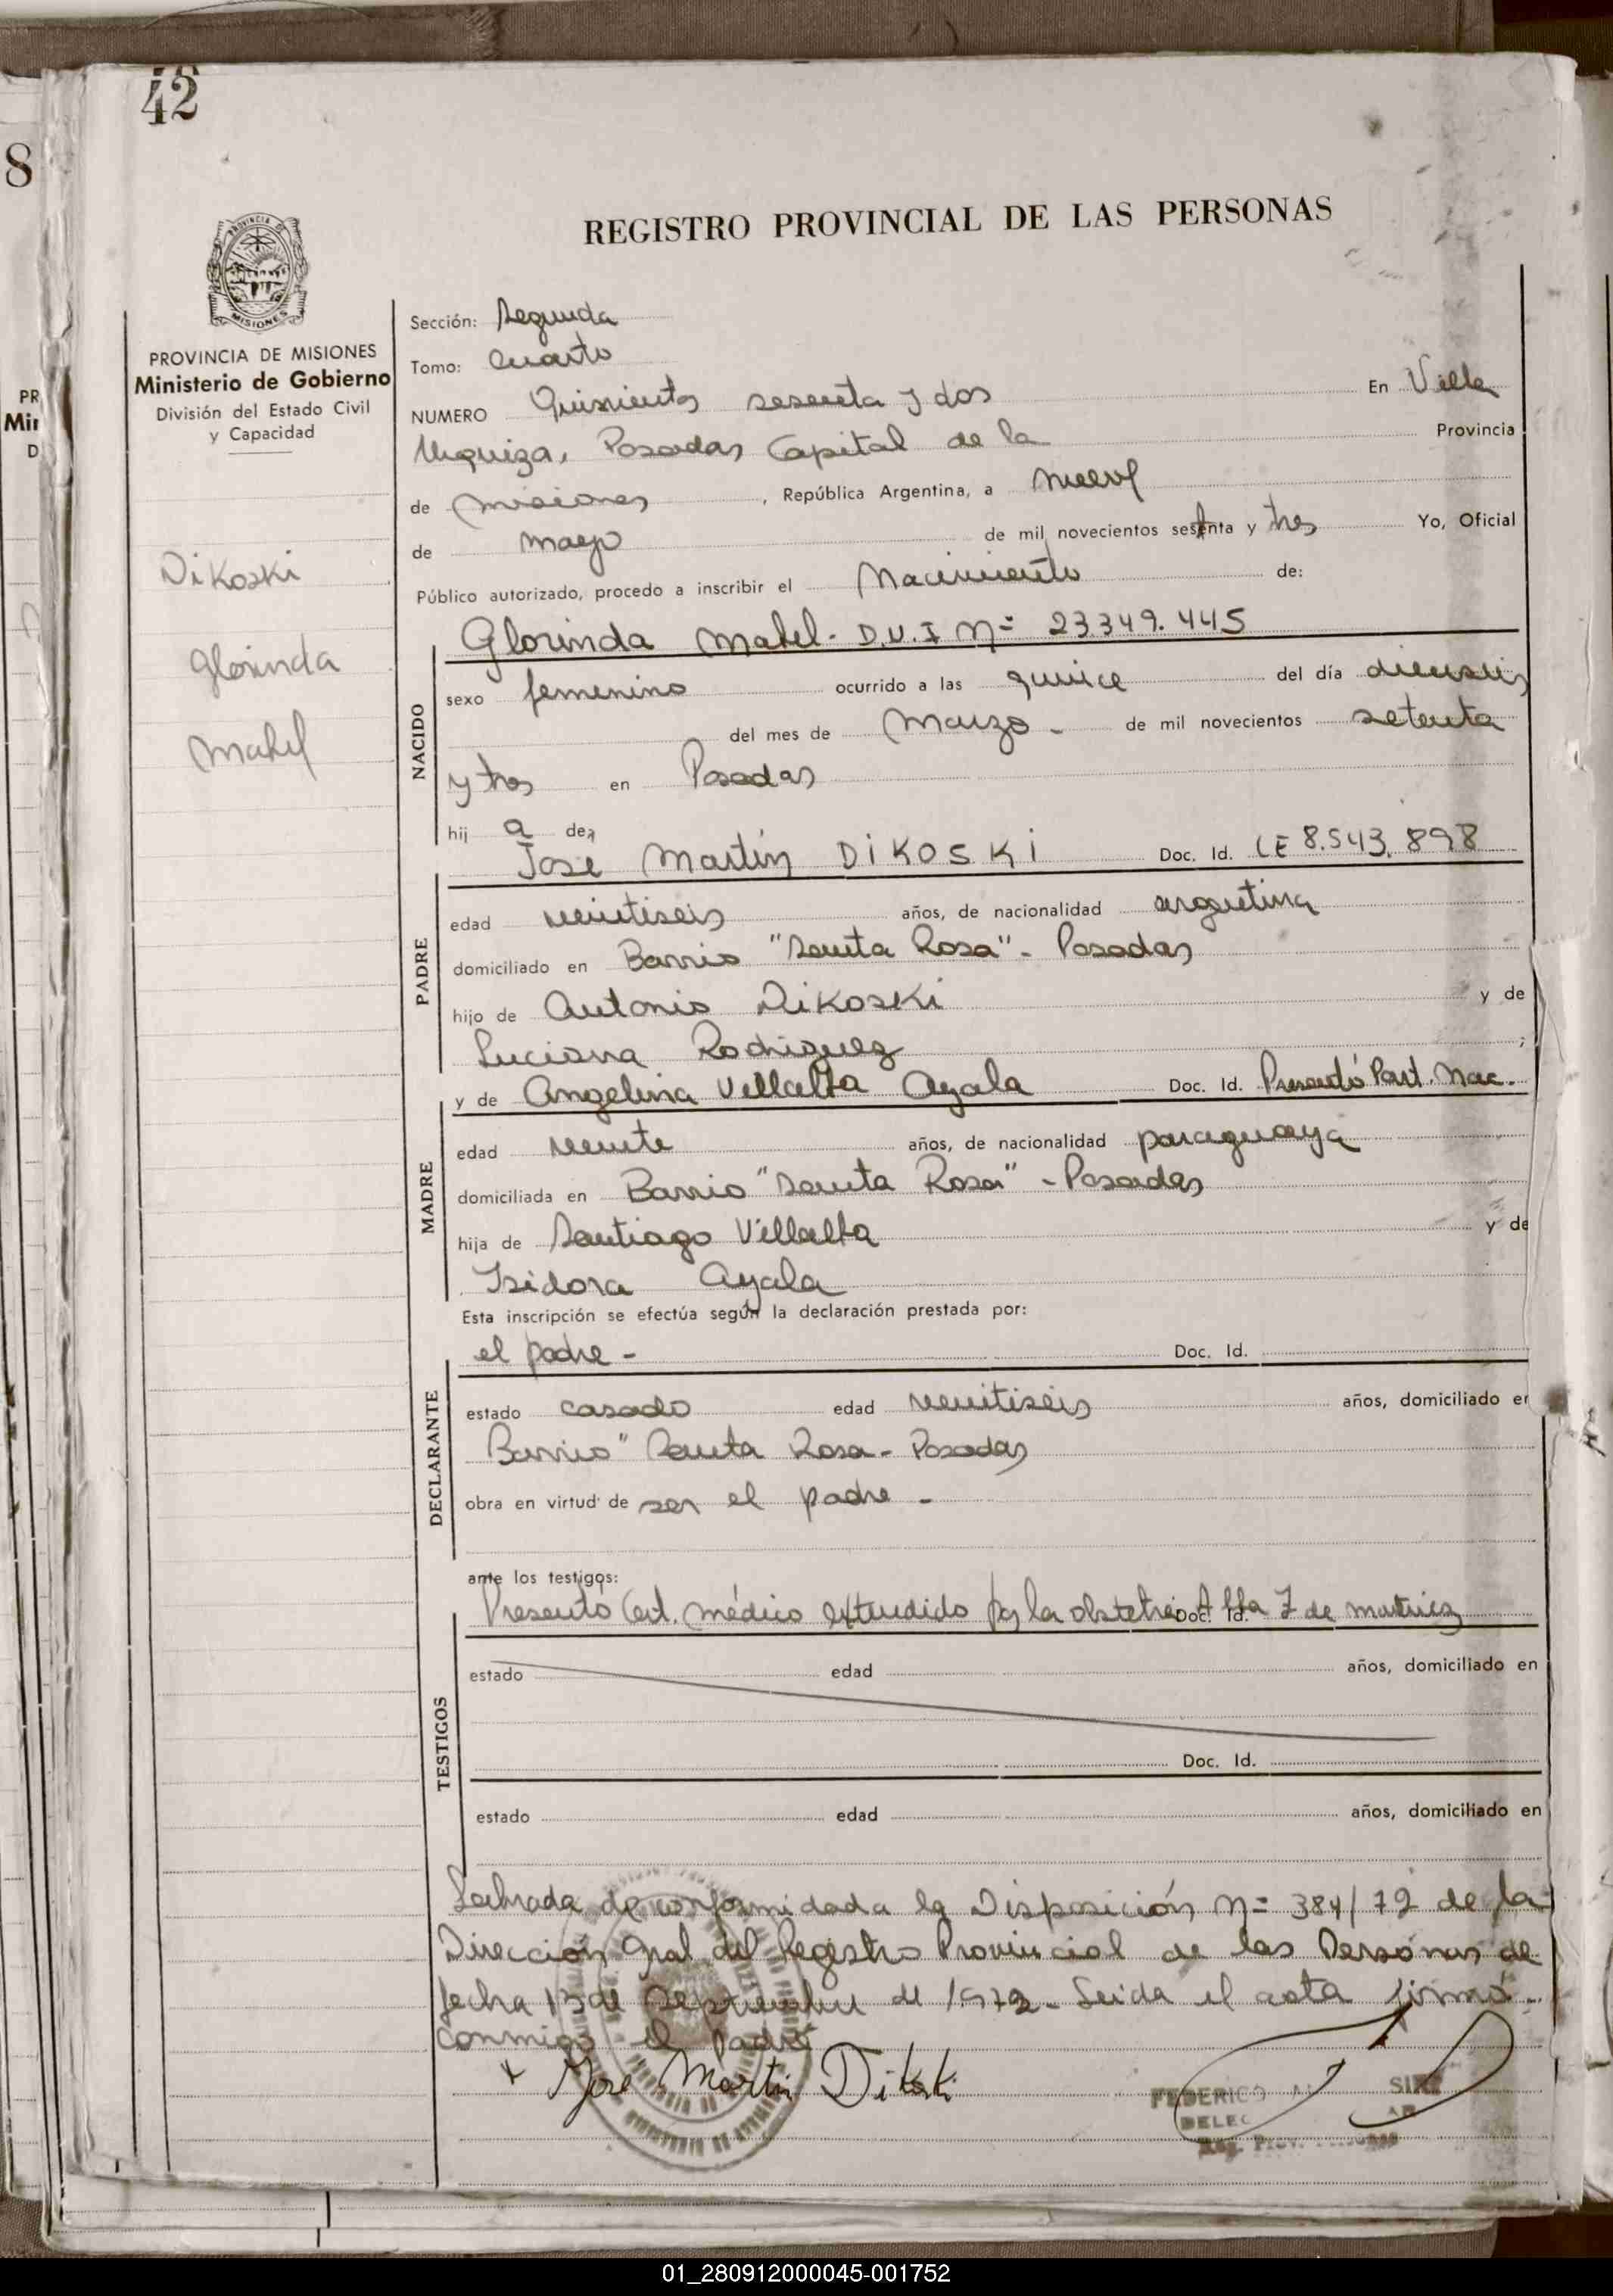 42
8
REGISTRO PROVINCIAL DE LAS PERSONAS
PROVINCIA
MISIONES
PROVINCIA DE MISIONES
Ministerio de Gobierno
División del Estado Civil
y Capacidad
PR
Mir
D
Dikoski
Glorinda
Mabel
Sección: Segunda
Tomo: Cuarto
NUMERO Quinientos sesenta y dos En Villa
Urquiza, Posadas Capital de la Provincia
de Misiones, República Argentina, a nueve
de mayo de mil novecientos setenta y tres Yo, Oficial
Público autorizado, procedo a inscribir el Nacimiento de:
Glorinda Mabel - D.U.I Nº 23.349.445
NACIDO
sexo femenino ocurrido a las quince del día dieciseis
del mes de Marzo - de mil novecientos setenta
y tres en Posadas
hij a de
José Martín DIKOSKI Doc. Id. LE 8.543.898
PADRE
edad veintiseis años, de nacionalidad argentina
domiciliado en Barrio "Santa Rosa" - Posadas
hijo de Antonio Dikoski y de
Luciana Rodriguez ;
y de Angelina Villalba Ayala Doc. Id. Presentó Part. Nac.
MADRE
edad veinte años, de nacionalidad paraguaya
domiciliada en Barrio "Santa Rosa" - Posadas
hija de Santiago Villalba y de
Isidora Ayala
Esta inscripción se efectúa según la declaración prestada por:
el padre - Doc. Id.
DECLARANTE
estado casado edad veintiseis años, domiciliado en
Barrio "Santa Rosa - Posadas
obra en virtud de ser el padre -
ante los testigos:
Presentó Cert. médico extendido por la obstetra Doc. Id. Z de
TESTIGOS
estado edad años, domiciliado en
Doc. Id.
estado edad años, domiciliado en
Labrada de conformidad a la Disposición Nº 384/72 de la
Dirección Gral del Registro Provincial de las Personas de
fecha 13 de Septiembre de 1972 - Leida el acta firmó -
conmigo el padre
x José Martin Dikoski
FEDERICO
DELEG
Reg. Prov.
01_280912000045-001752